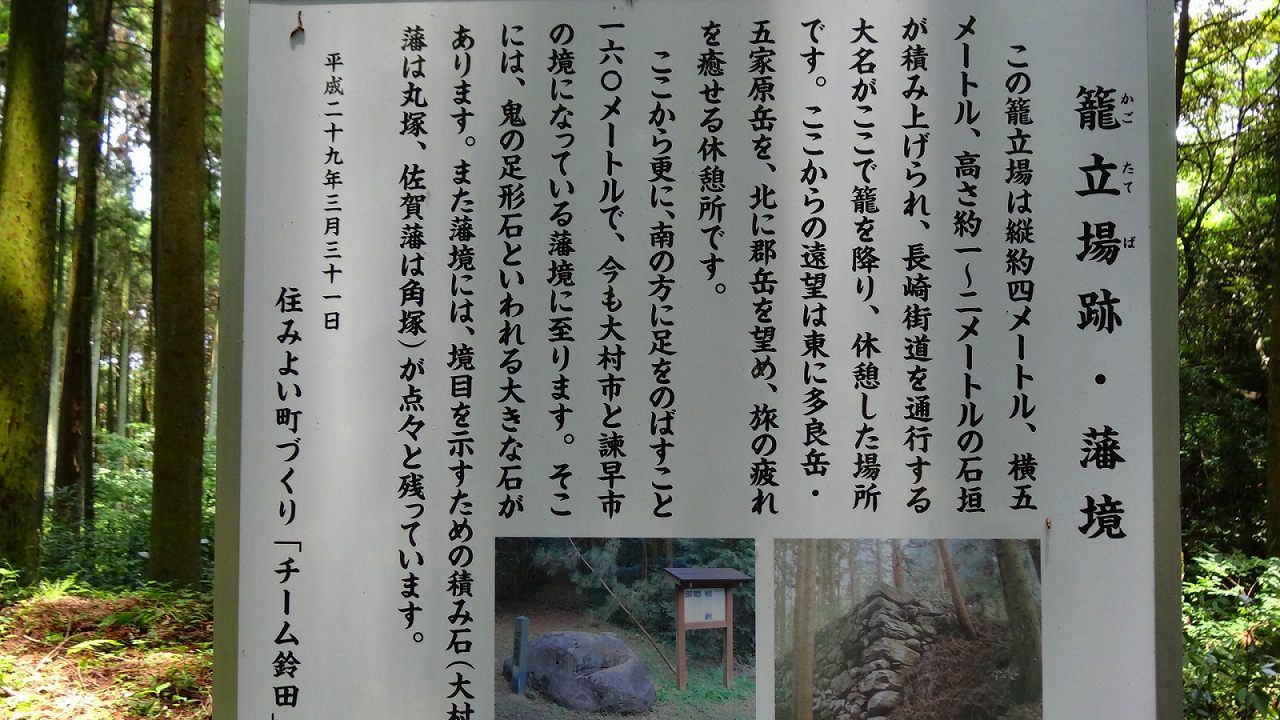 籠立場跡・藩境
かご たて ば
この籠立場は縦約四メートル、横五
メートル、高さ約一～二メートルの石垣
が積み上げられ、長崎街道を通行する
大名がここで籠を降り、休憩した場所
です。ここからの遠望は東に多良岳・
五家原岳を、北に郡岳を望め、旅の疲れ
を癒せる休憩所です。
ここから更に、南の方に足をのばすこと
一六〇メートルで、今も大村市と諫早市
の境になっている藩境に至ります。そこ
には、鬼の足形石といわれる大きな石が
あります。また藩境には、境目を示すための積み石(大村
藩は丸塚、佐賀藩は角塚)が点々と残っています。
平成二十九年三月三十一日
住みよい町づくり「チーム鈴田」